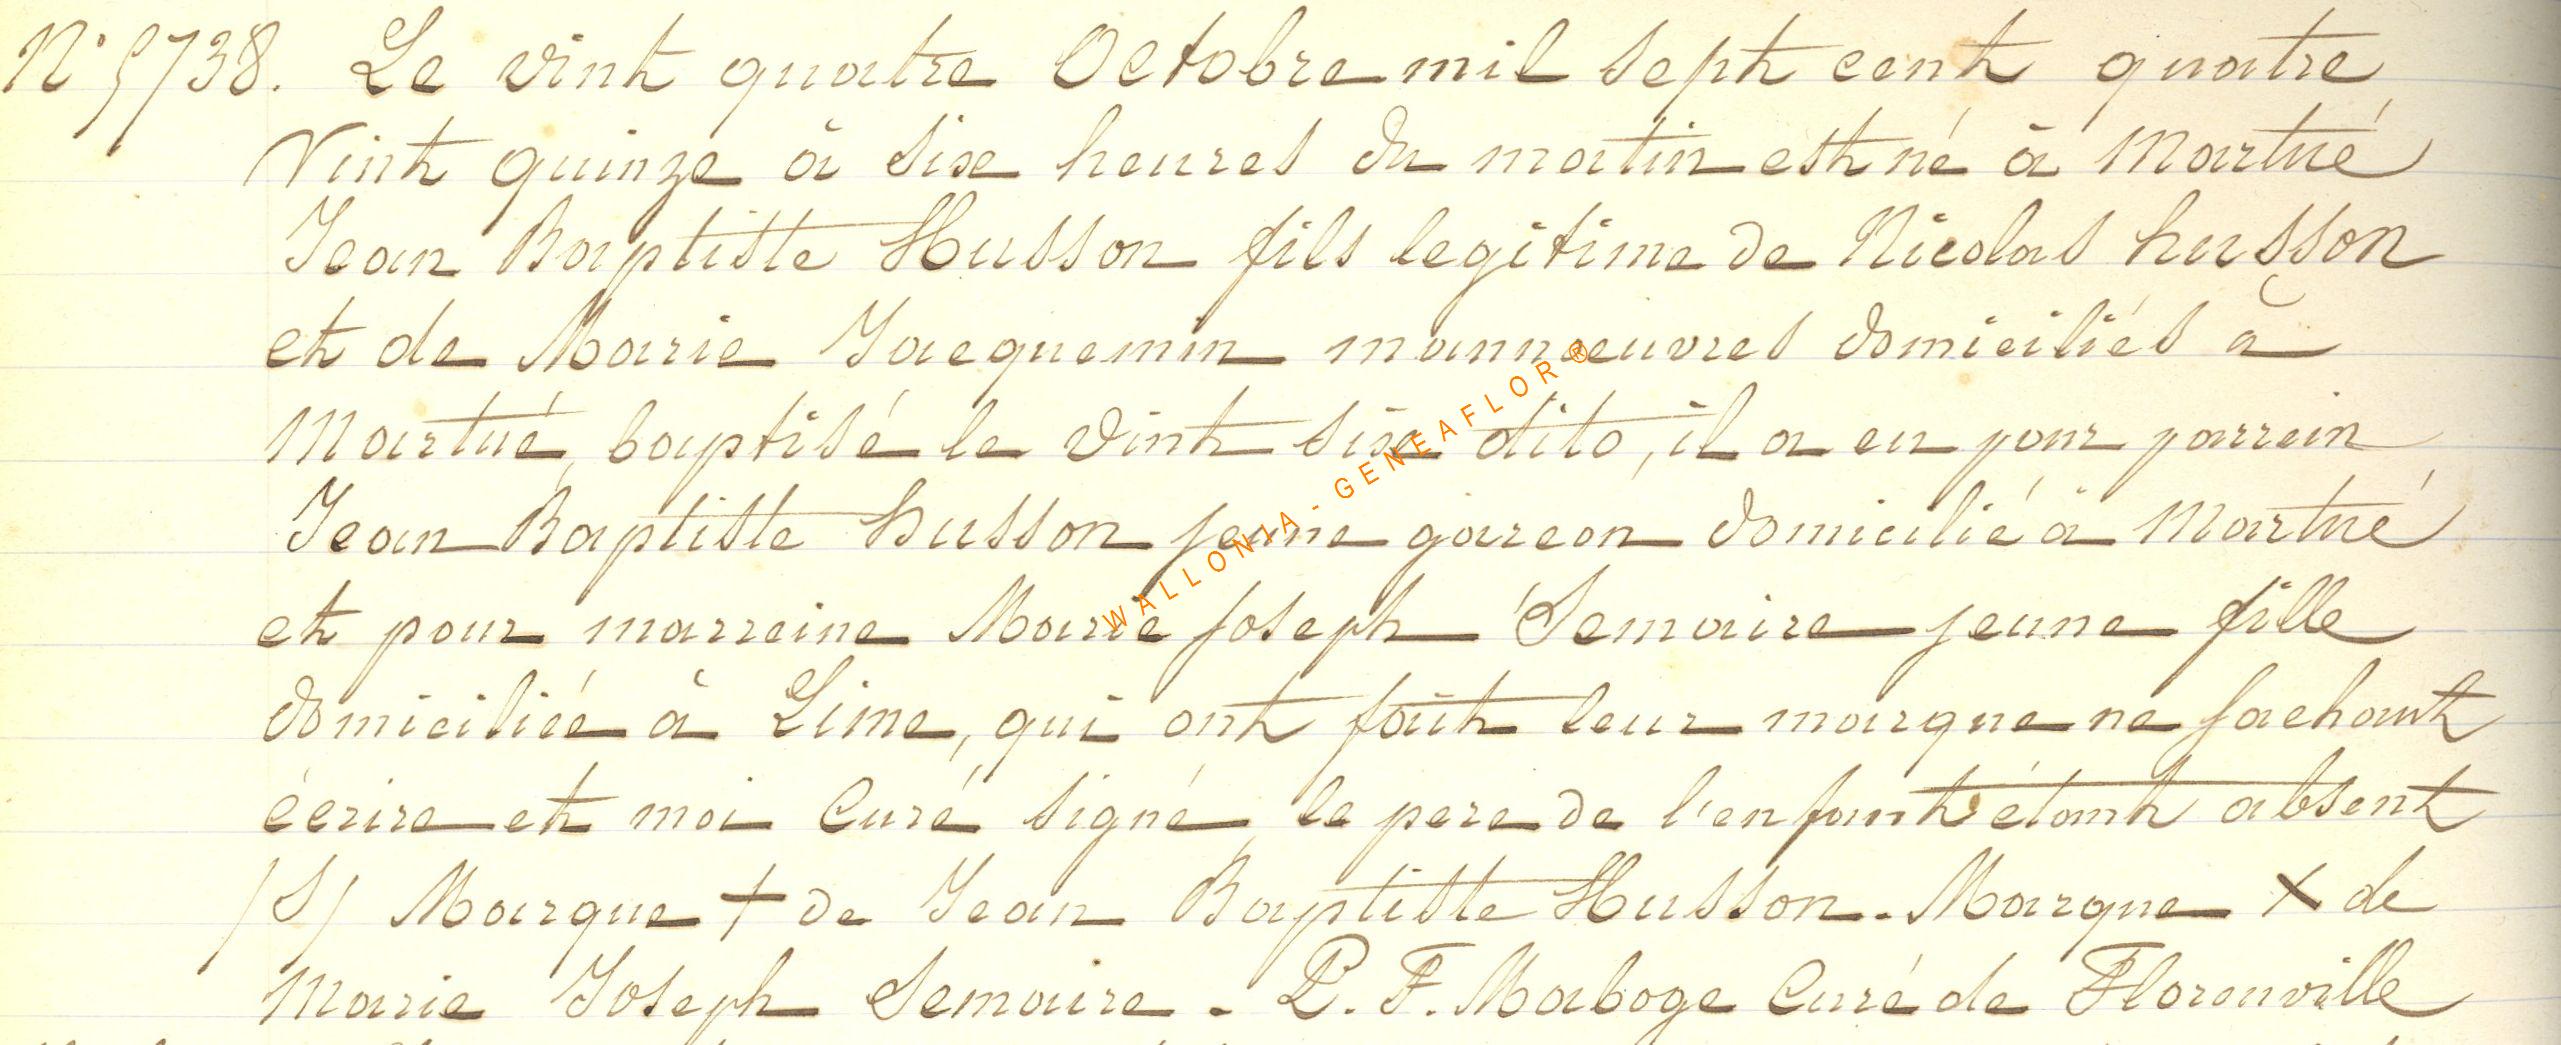 N° 5738. Le vint quatre Octobre mil sept cent quatre
Vint quinze à six heures du matin est né à Martué
Jean Baptiste Husson fils legitime de Nicolas husson
et de Marie Jacquemin mannœuvres domiciliés à
Martué, baptisé le vint six dito, il a eu pour parrein
Jean Baptiste husson jeune garcon domicilié à Martué
et pour marreine Marie joseph Semaire jeune fille
domiciliée à Lime, qui ont fait leur marque ne sachant
écrire et moi Curé signé, le pere de l'enfant étant absent
(S) Marque + de Jean Baptiste Husson. Marque X de
Marie Joseph Semaire. P. F. Maboge Curé de Florenville
WALLONIA - GENEAFLOR ®